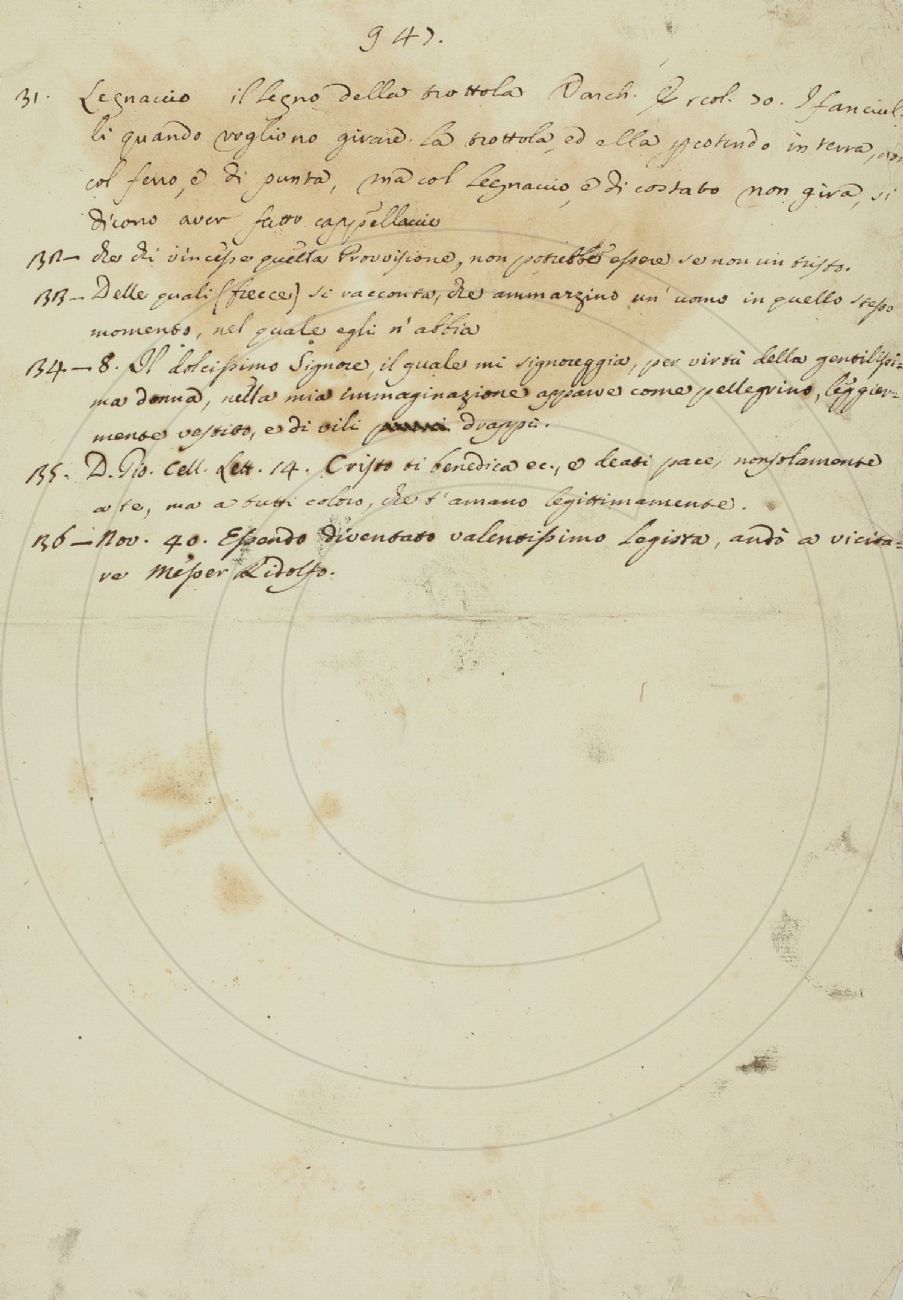 947.
31. Legnaccio il legno della trottola Varch. Ercol. 70. I fanciul=
li quando vogliono girare la trottola, ed ella percotendo in terra, non
col ferro, e di punta, ma col legnaccio, e di costato non gira, si
dicono aver fatto cappellaccio
132 — che chi vincesse quella Provvisione, non potrebbe essere se non un tristo.
133 — Delle quali (frecce) si racconta, che ammazzino un' uomo in quello stesso
momento, nel quale egli n' abbia
134 — 8. Il dolcissimo Signore, il quale mi signoreggia, per virtù della gentilissi=
ma donna, nella mia immaginazione apparve come pellegrino, leggier=
mente vestito, e di vili drappi.
135. D. Gio. Cell. Lett. 14. Cristo ti benedica ec., e deati pace, non solamente
a te, ma a tutti coloro, che t' amano legittimamente.
136 — Nov. 40. Essendo diventato valentissimo legista, andò a vicita=
re Messer Ridolfo.